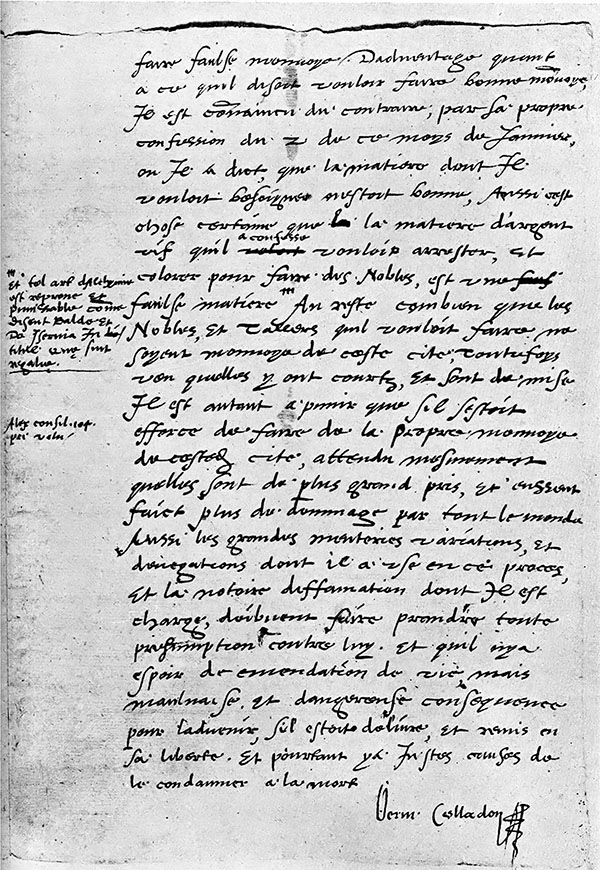 faire faulse monnoye. Dadventage quant
a ce quil disoit vouloir faire bonne monoye,
Il est convaincu du contraire, par sa propre
confession du 2 de ce moys de Janvier,
ou Il a dict, que la matiere dont Il
vouloit besoigner nestoit bonne, Aussi cest
chose certaine que la matiere d'argent
vif quil a confesse vouloir arrester, et
colorer pour faire des Nobles, est une
faulse matiere Au reste combien que les
Nobles, et Tallers quil vouloit faire ne
soyent monnoye de ceste cite, toutesfoys
veu quelles y ont courtz, et sont de mise
Il est autant a punir que sil sestoit
efforce de faire de la propre monnoye
de ceste cite, attendu mesmement
quelles sont de plus grand pris, et eussent
faict plus de dommage par tout le monde
Aussi les grandes menteries variations, et
denegations dont il a use en ce proces,
Et la notoire diffamation dont Il est
charge, doibvent faire prandre toute
presumption contre luy. Et quil nya
espoir de emendation de vie, mais
maulvaise, et dangereuse consequence
pour ladvenir, sil estoit delivre, et remis en
sa liberte. Et pourtant ya Justes causes de
le condamner a la mort
Germ. Colladon
Et tel art dalchymie
est reprouve et
punissable come
disent Balde et
De Isernia in
titul que sint
regalie.
Alex consil.